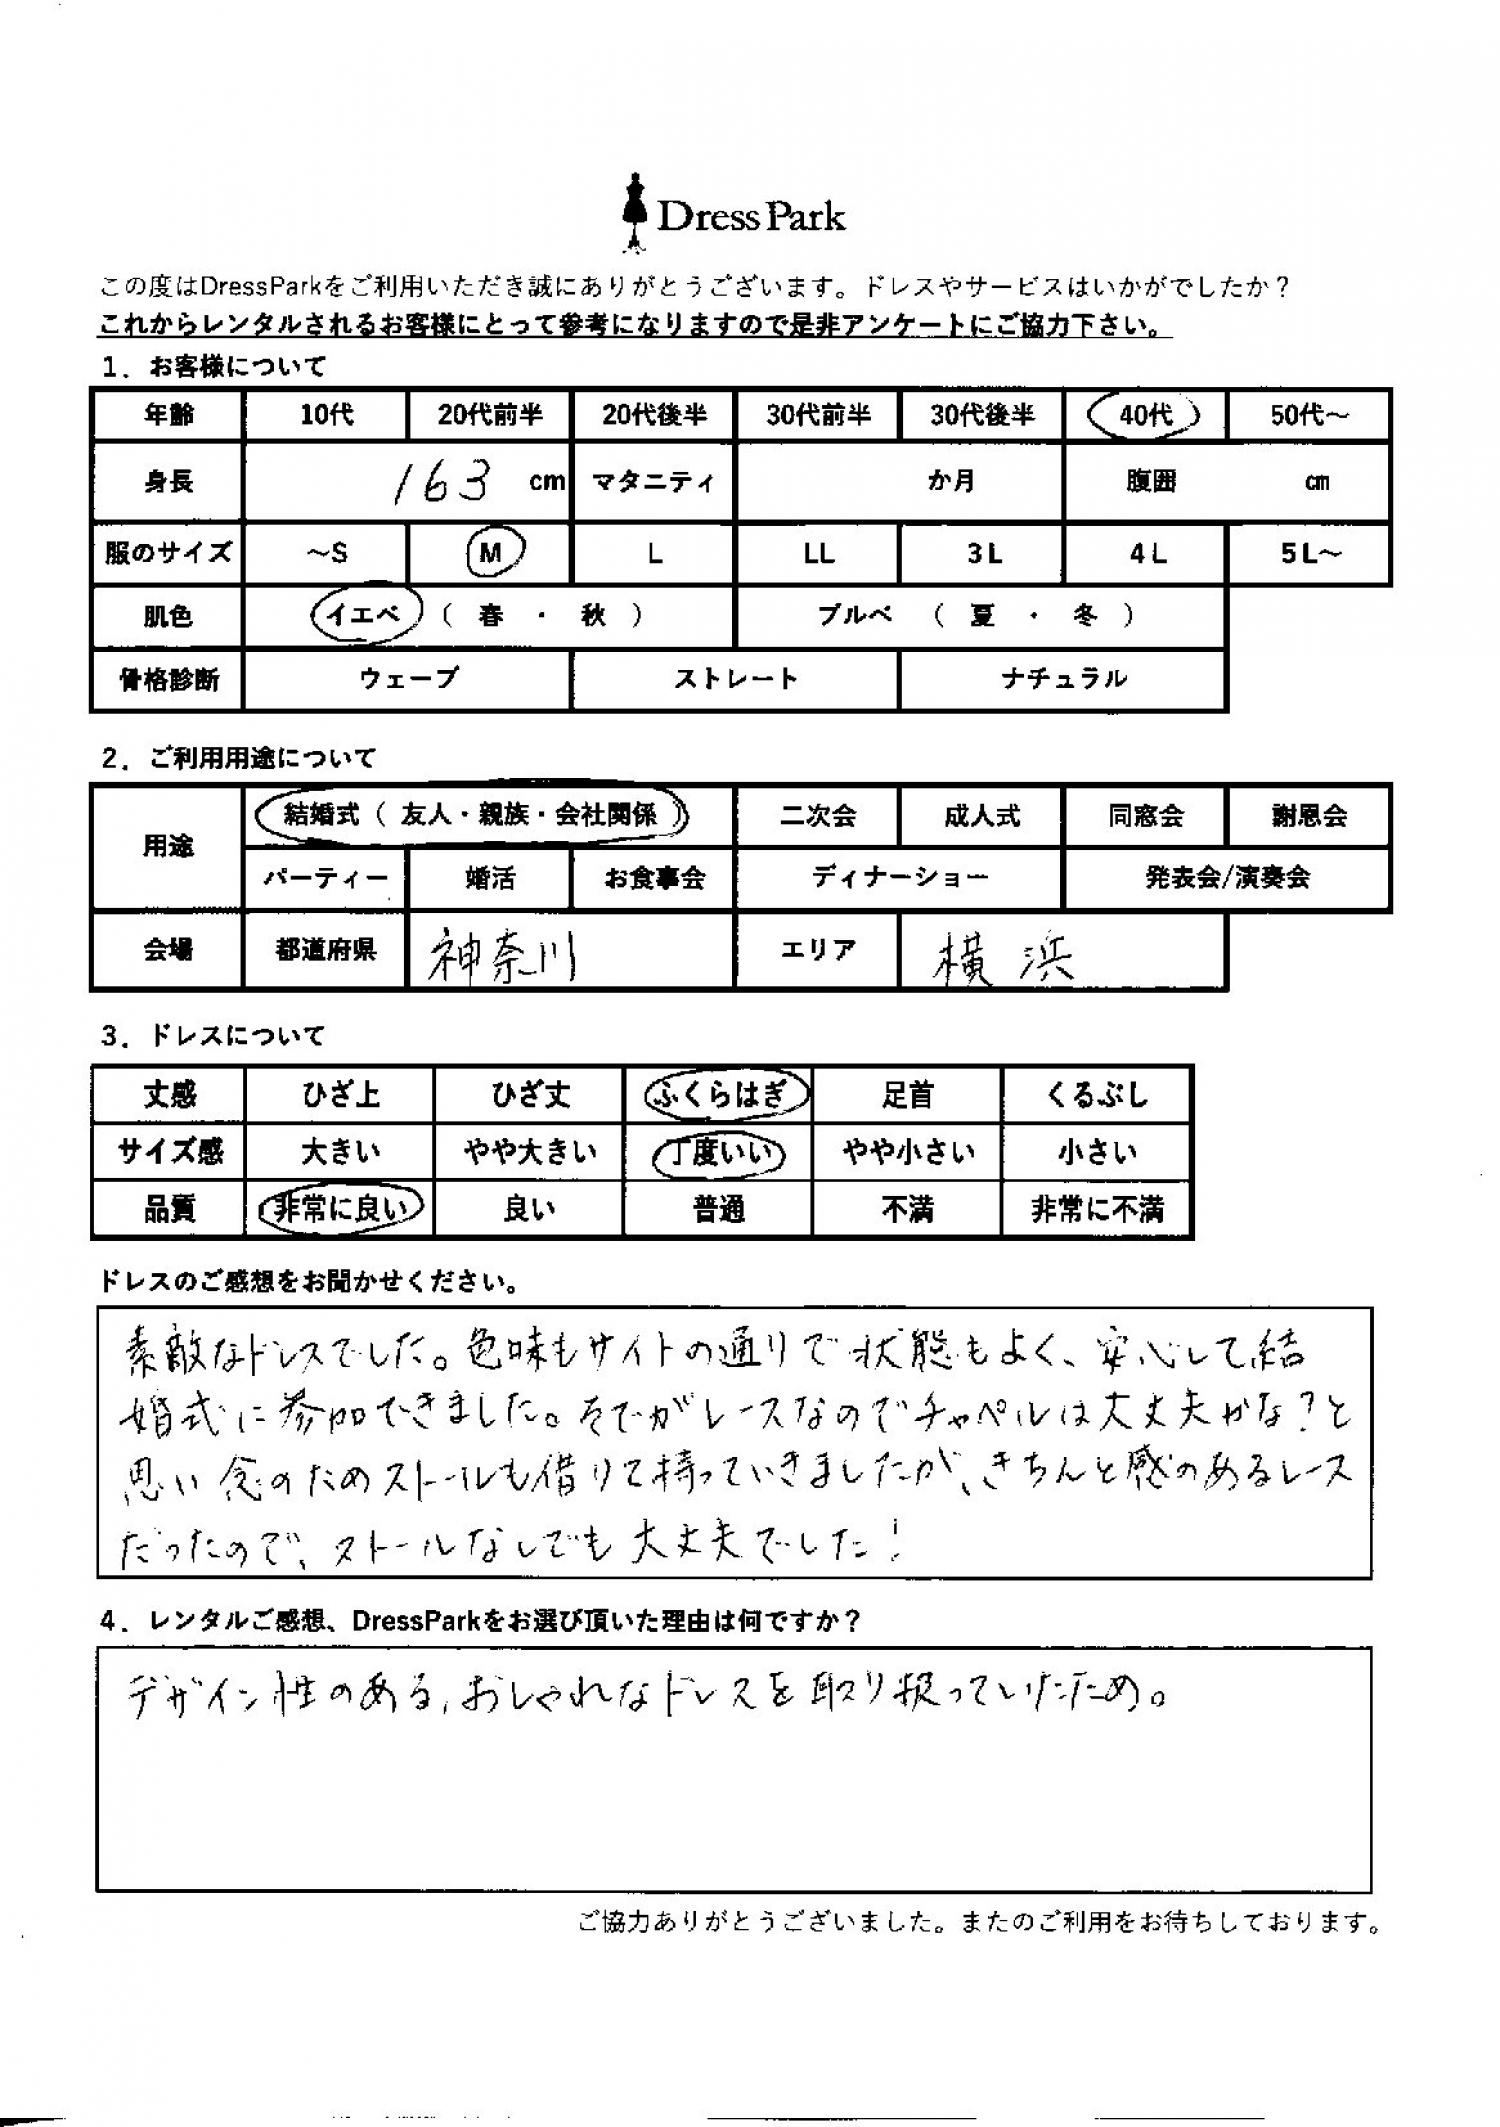 Dress Park
この度はDressParkをご利用いただき誠にありがとうございます。ドレスやサービスはいかがでしたか？
これからレンタルされるお客様にとって参考になりますので是非アンケートにご協力下さい。
1．お客様について
年齢 10代 20代前半 20代後半 30代前半 30代後半 40代 50代～
身長 163 cm マタニティ か月 腹囲 ㎝
服のサイズ ～S M L LL 3L 4L 5L～
肌色 イエベ （ 春 ・ 秋 ） ブルベ （ 夏 ・ 冬 ）
骨格診断 ウェーブ ストレート ナチュラル
2．ご利用用途について
用途 結婚式（ 友人・親族・会社関係 ） 二次会 成人式 同窓会 謝恩会
パーティー 婚活 お食事会 ディナーショー 発表会/演奏会
会場 都道府県 神奈川 エリア 横浜
3．ドレスについて
丈感 ひざ上 ひざ丈 ふくらはぎ 足首 くるぶし
サイズ感 大きい やや大きい 丁度いい やや小さい 小さい
品質 非常に良い 良い 普通 不満 非常に不満
ドレスのご感想をお聞かせください。
素敵なドレスでした。色味もサイトの通りで状態もよく、安心して結
婚式に参加できました。そでがレースなのでチャペルは大丈夫かな？と
思い念のためストールも借りて持っていきましたが、きちんと感のあるレース
だったので、ストールなしでも大丈夫でした！
4．レンタルご感想、DressParkをお選び頂いた理由は何ですか？
デザイン性のある、おしゃれなドレスを取り扱っていたため。
ご協力ありがとうございました。またのご利用をお待ちしております。